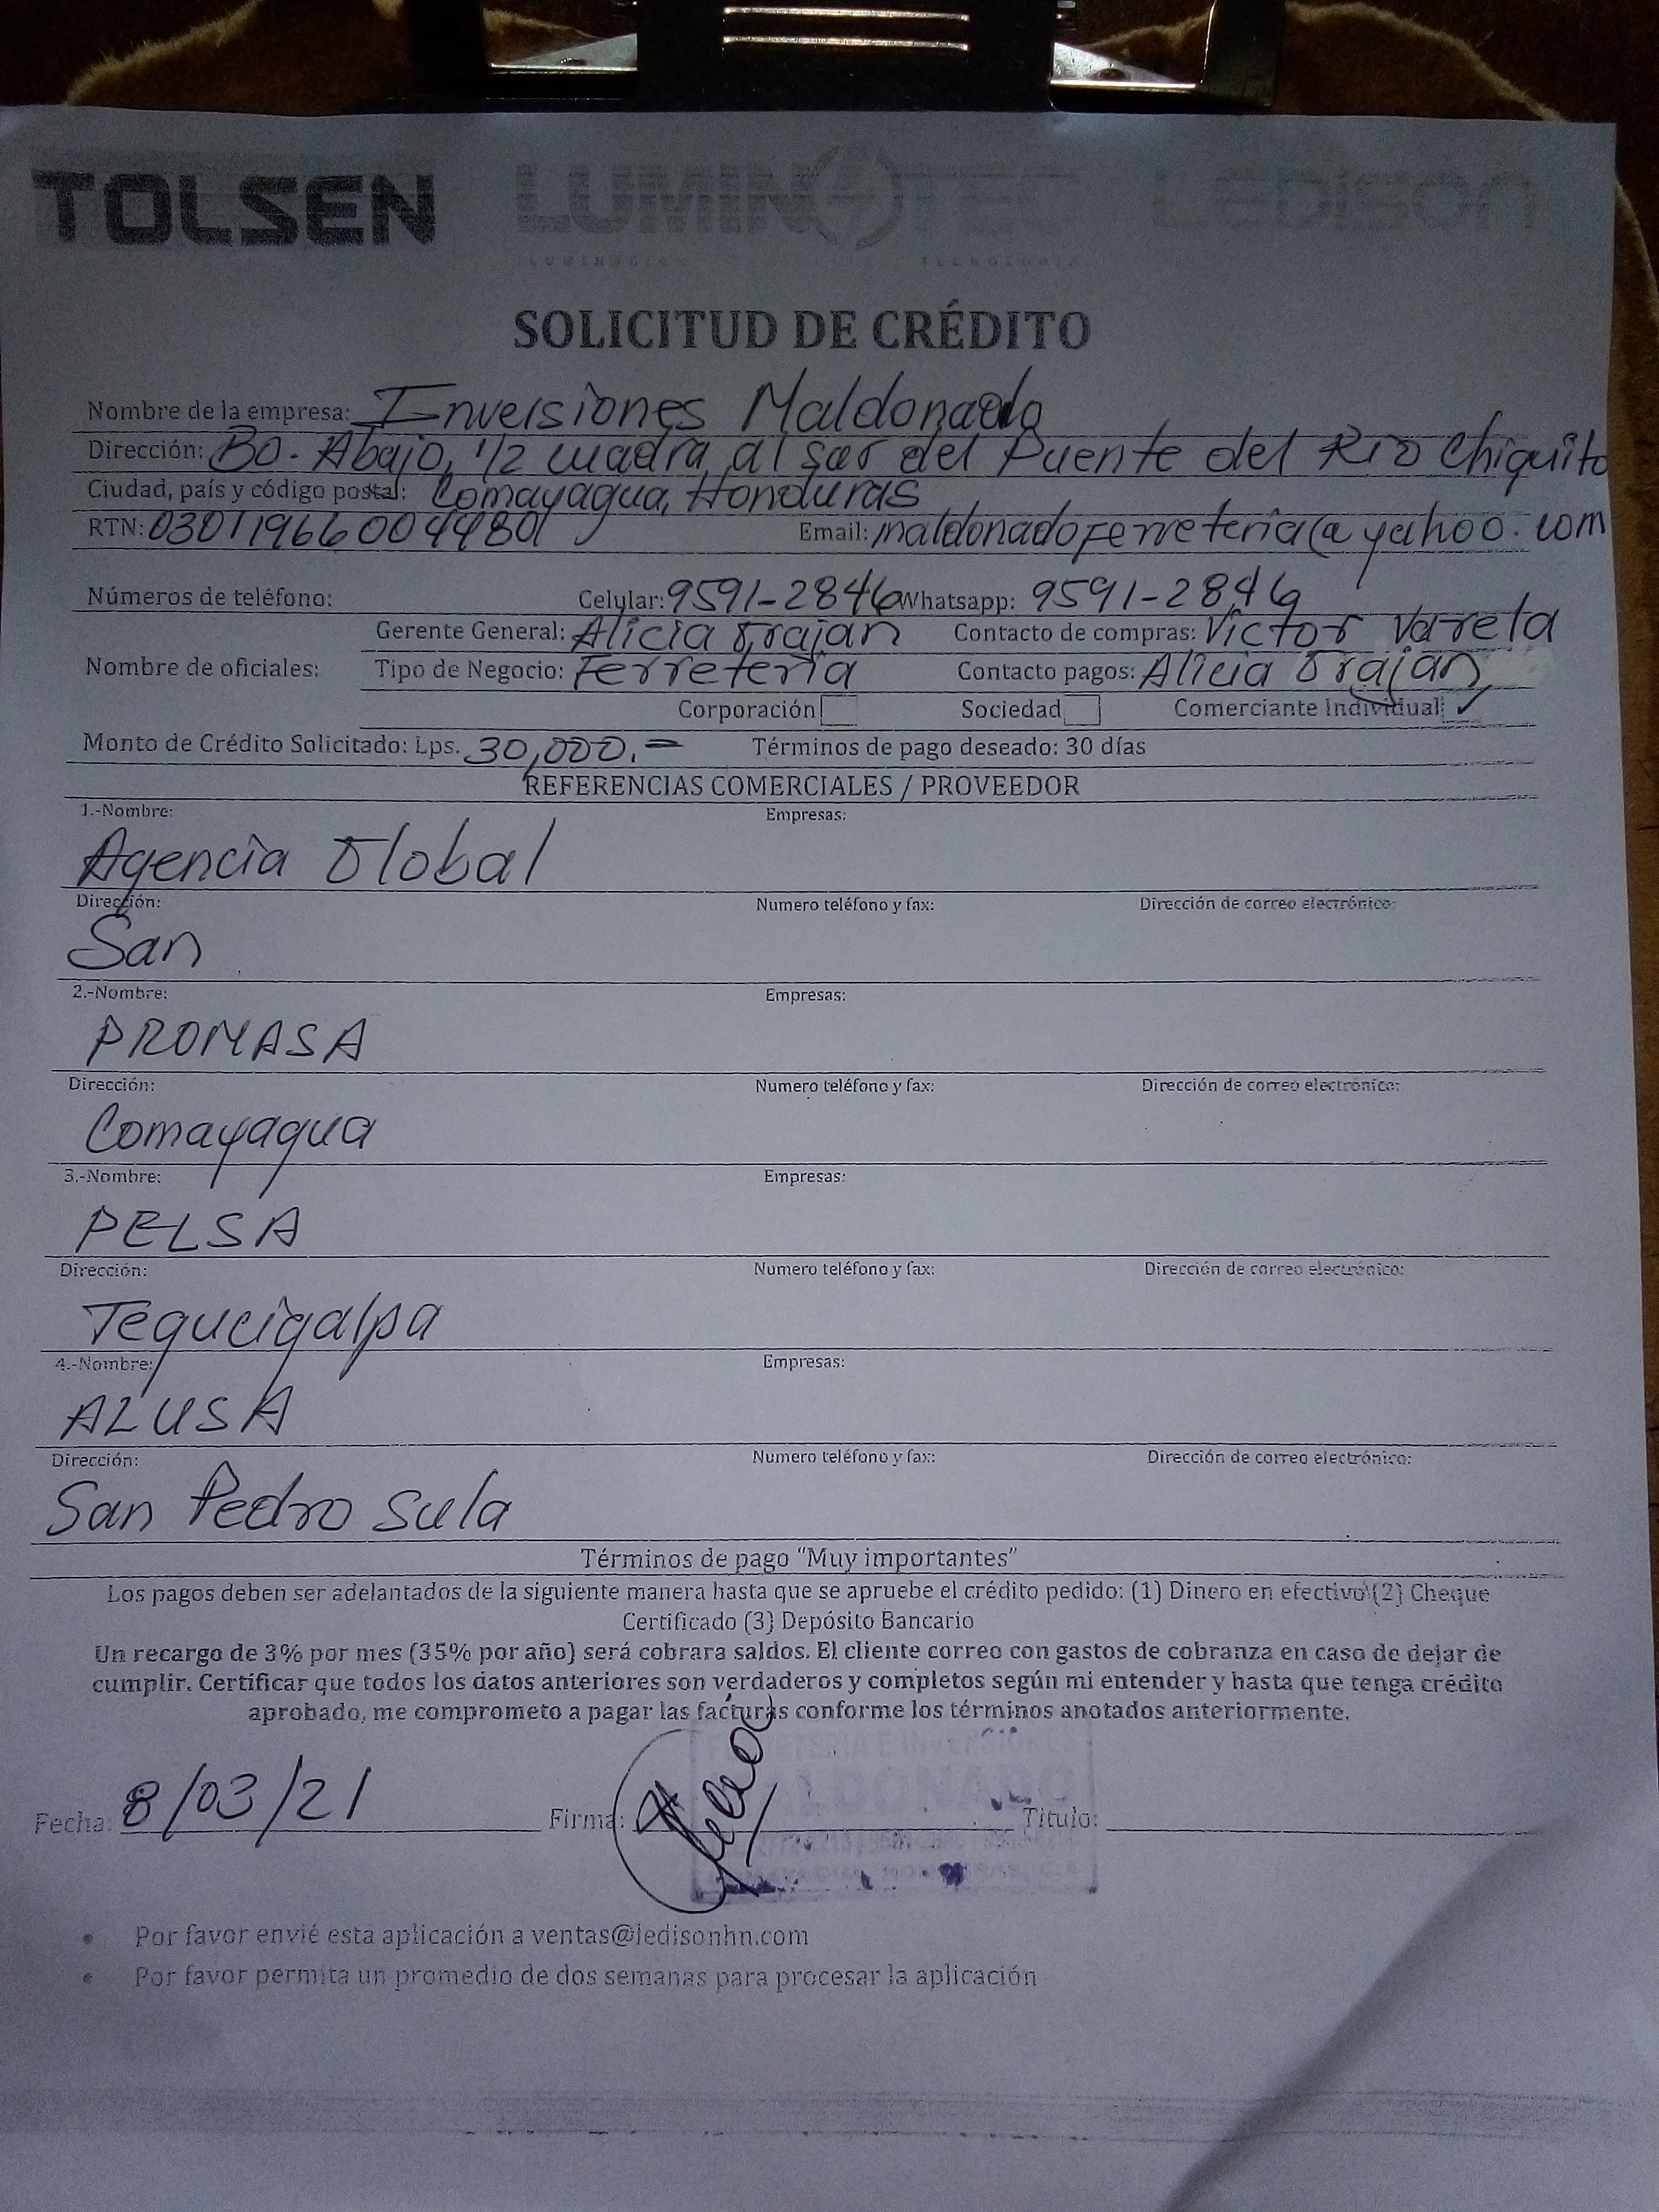 TOLSEN LUMINOTEC LEDISON
SOLICITUD DE CRÉDITO
Nombre de la empresa: Inversiones Maldonado
Dirección: Bo. Abajo, 1/2 cuadra al sur del Puente del Rio Chiquito
Ciudad, país y código postal: Comayagua, Honduras
RTN: 03011966004480 Email: maldonadoferreteria@yahoo.com
Números de teléfono: Celular: 9591-2846 Whatsapp: 9591-2846
Gerente General: Alicia Grajan Contacto de compras: Victor Varela
Nombre de oficiales: Tipo de Negocio: Ferretería Contacto pagos: Alicia Grajan
Corporación Sociedad Comerciante Individual: ✓
Monto de Crédito Solicitado: Lps. 30,000.= Términos de pago deseado: 30 días
REFERENCIAS COMERCIALES / PROVEEDOR
1.-Nombre: Empresas:
Agencia Global
Dirección: Numero teléfono y fax: Dirección de correo electrónico:
San
2.-Nombre: Empresas:
PROMASA
Dirección: Numero teléfono y fax: Dirección de correo electrónico:
Comayagua
3.-Nombre: Empresas:
PELSA
Dirección: Numero teléfono y fax: Dirección de correo electrónico:
Tegucigalpa
4.-Nombre: Empresas:
ALUSA
Dirección: Numero teléfono y fax: Dirección de correo electrónico:
San Pedro Sula
Términos de pago “Muy importantes”
Los pagos deben ser adelantados de la siguiente manera hasta que se apruebe el crédito pedido: (1) Dinero en efectivo\(2) Cheque
Certificado (3) Depósito Bancario
Un recargo de 3% por mes (35% por año) será cobrara saldos. El cliente correo con gastos de cobranza en caso de dejar de
cumplir. Certificar que todos los datos anteriores son verdaderos y completos según mi entender y hasta que tenga crédito
aprobado, me comprometo a pagar las facturas conforme los términos anotados anteriormente.
Fecha: 8/03/21 Firma: Titulo:
Por favor envié esta aplicación a ventas@ledisonhn.com
Por favor permita un promedio de dos semanas para procesar la aplicación